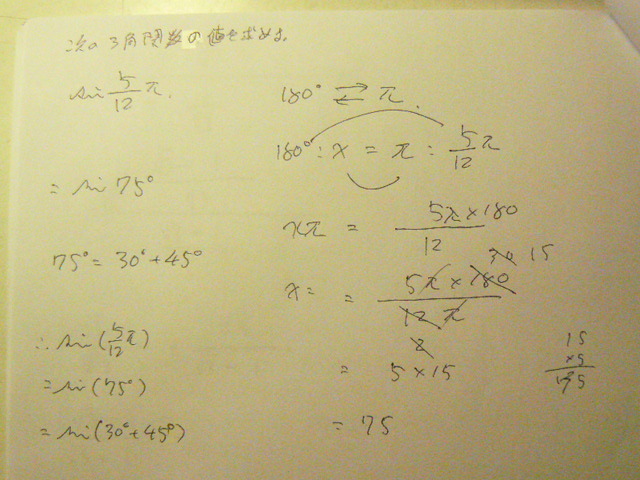 次の3角関数の値を求めよ。
sin 5/12 π.
= sin 75°
75° = 30° + 45°
∴ sin(5/12 π)
= sin(75°)
= sin(30° + 45°)
180° ⇄ π.
180° : x = π : 5/12 π
xπ = 5π×180 / 12
30 15
x = = 5π×180 / 12π
2
= 5×15
= 75
15
×5
75